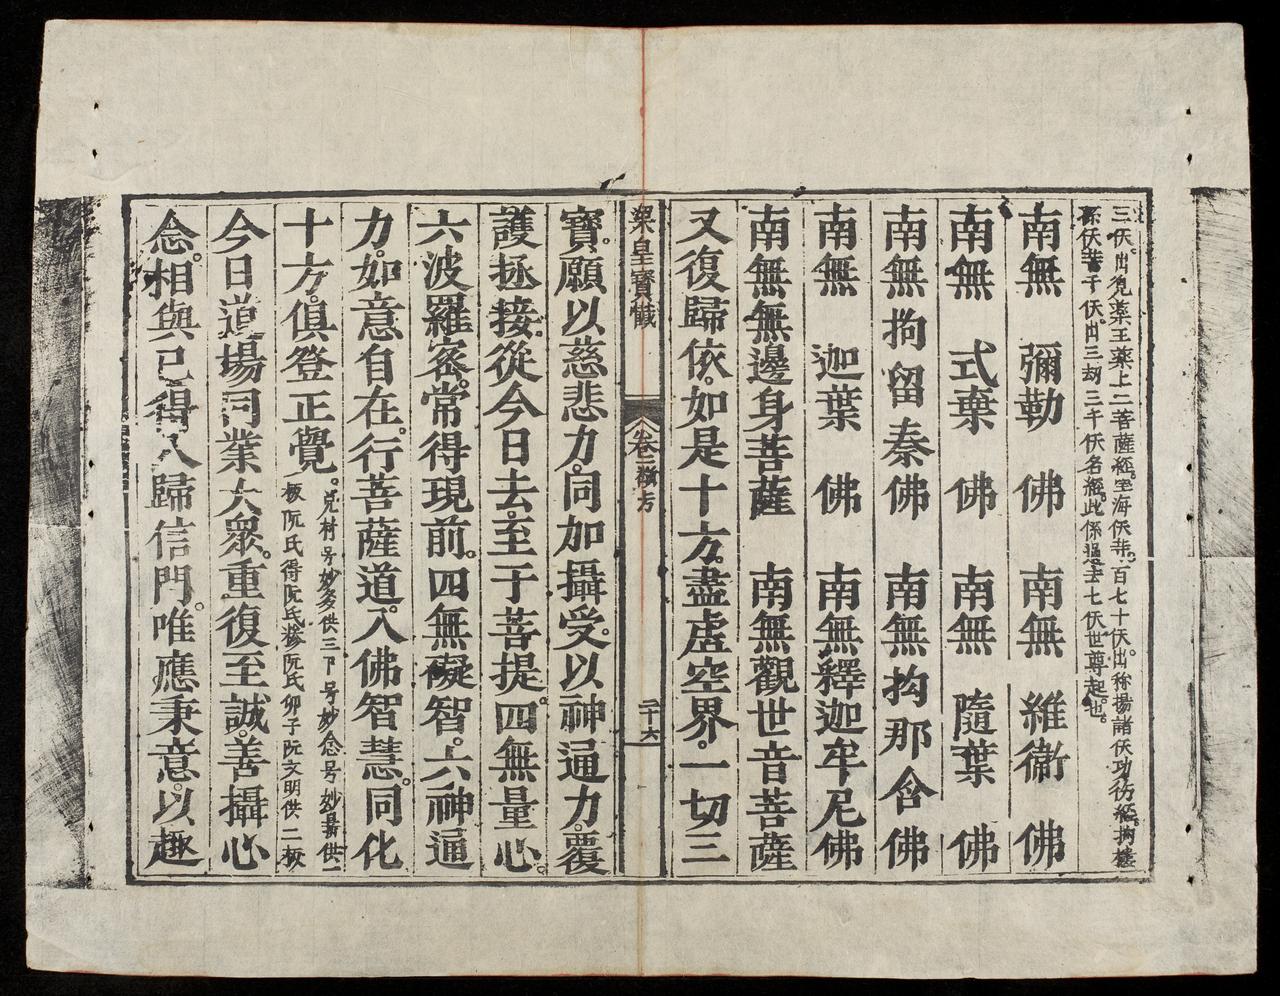 三伏。出覓藥王藥上二菩薩經。堅海伏拜。百七十伏。出稱揚諸伏功彷經。拘樓
孫伏等千伏。出三刼三千伏名經。此係過去七伏世尊起也。
南無 彌勒 佛 南無 維衞 佛
南無 式棄 佛 南無 隨葉 佛
南無拘留秦佛 南無拘那含佛
南無 迦葉 佛 南無釋迦牟尼佛
南無無邊身菩薩 南無觀世音菩薩
又復歸依。如是十方。盡虛空界。一切三
梁皇寶懺 卷二 二十六
寶。願以慈悲力。同加攝受。以神通力。覆
護拯接。從今日去。至于菩提。四無量心。
六波羅密。常得現前。四無礙智。六神通
力。如意自在。行菩薩道。入佛智慧。同化
十方。俱登正覺。
村号妙多供三下号妙念号妙供一
板阮氏得阮氏移阮氏卯子阮文明供二板
今日道場同業大眾。重復至誠。善攝心
念。相與已得入歸信門。唯應秉意。以趣